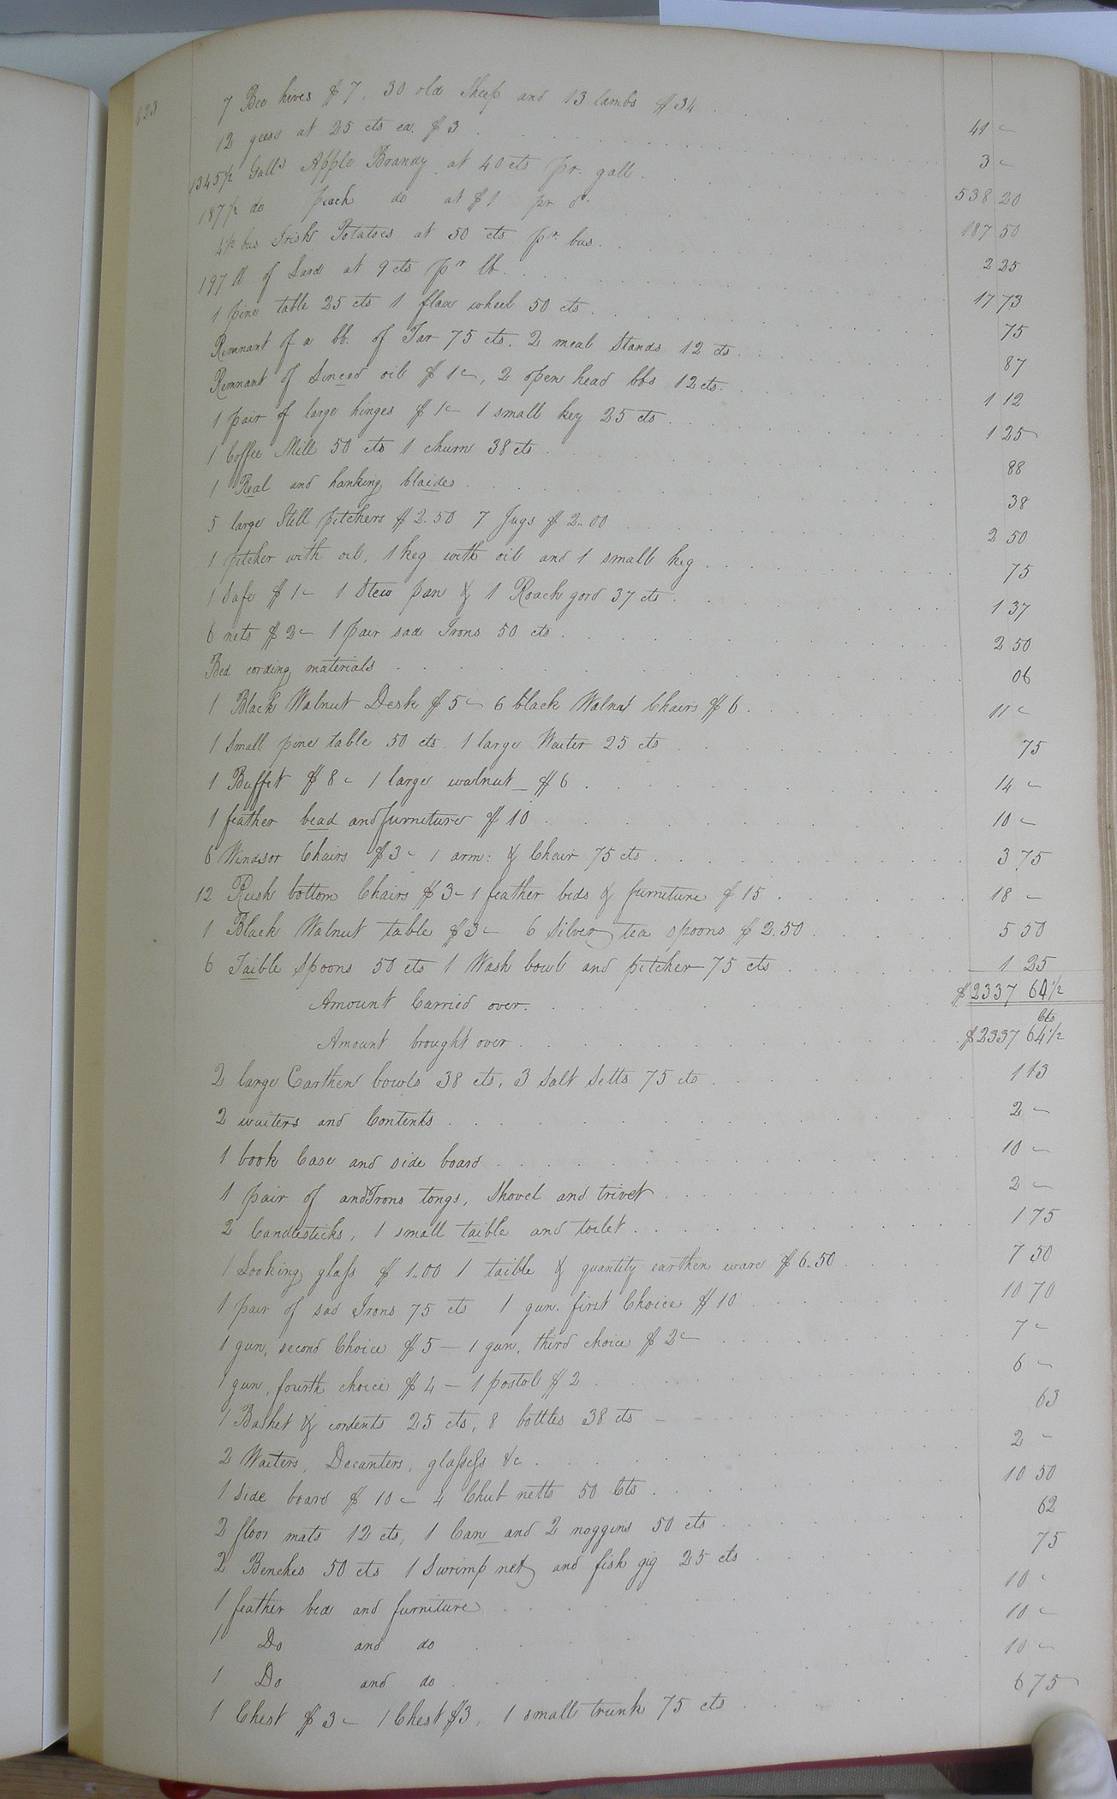 623
7 Bee hives $7. 30 old Sheep and 13 lambs $34 41 "
12 geese at 25 cts ea. $3 3 "
1345½ Galls Apple Brandy at 40 cts pr. gall. 538 20
187½ do peach do at $1 pr do 187 50
4½ bus Irish Potatoes at 50 cts pr bus. 2 25
197 lb of Lard at 9 cts pr lb. 17 73
1 pine table 25 cts 1 flax wheel 50 cts. 75
Remnant of a bb. of Tar 75 cts. 2 meal Stands 12 cts. 87
Remnant of Linceed oil $1", 2 open head bbs 12 cts. 1 12
1 pair of large hinges $1" 1 small key 25 cts 1 25
1 Coffee Mill 50 cts 1 churn 38 cts 88
1 Real and hanking blaides 38
5 large Still pitchers $2.50 7 Jugs $2.00 2 50
1 pitcher with oil, 1 keg with oil and 1 small keg 75
1 Safe $1" 1 Stew pan & 1 Roach gord 37 cts 1 37
6 nets $2" 1 pair sad Irons 50 cts 2 50
Bed cording materials 06
1 Black Walnut Desk $5" 6 black Walnut Chairs $6 11 "
1 Small pine table 50 cts 1 large Waiter 25 cts 75
1 Buffet $8" 1 large walnut — $6 14 "
1 feather bead and furniture $10 10 "
8 Windsor Chairs $3" 1 arm: & Chair 75 cts 3 75
12 Rush bottom Chairs $3" 1 feather beds & furniture $15 18 "
1 Black Walnut table $3" 6 Silver tea spoons $2.50 5 50
6 Taible Spoons 50 cts 1 Wash bowl and pitcher 75 cts 1 25
Amount Carried over. $2337 64½
Cts
Amount brought over $2337 64½
2 large Earthen bowls 38 cts, 3 Salt Setts 75 cts 1 13
2 waiters and Contents 2 "
1 book Case and side board 10 "
1 pair of andIrons tongs, Shovel and trivet 2 "
2 Candlesticks, 1 small taible and toilet 1 75
1 Looking glass $1.00 1 taible & quantity earthen ware $6.50 7 50
1 pair of sad Irons 75 cts 1 gun. first Choice $10 10 70
1 gun, second Choice $5 — 1 gun, third choice $2" 7 "
1 gun, fourth choice $4 — 1 postol $2 6 "
1 Basket & contents 25 cts, 8 bottles 38 cts 63
2 Waiters, Decanters, glasses &c 2 "
1 Side board $10" 4 Chub netts 50 Cts 10 50
2 floor mats 12 cts, 1 Can and 2 noggins 50 cts 62
2 Benches 50 cts 1 Swrimp net and fish gig 25 cts 75
1 feather bed and furniture 10 "
1 Do and do 10 "
1 Do and do 10 "
1 Chest $3" 1 Chest $3, 1 small trunk 75 cts 6 75